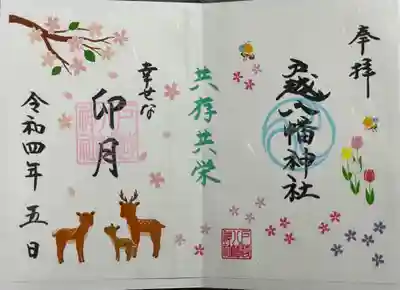 奉拝
戸越八幡神社
共存共栄
幸せな
卯月
令和四年五日